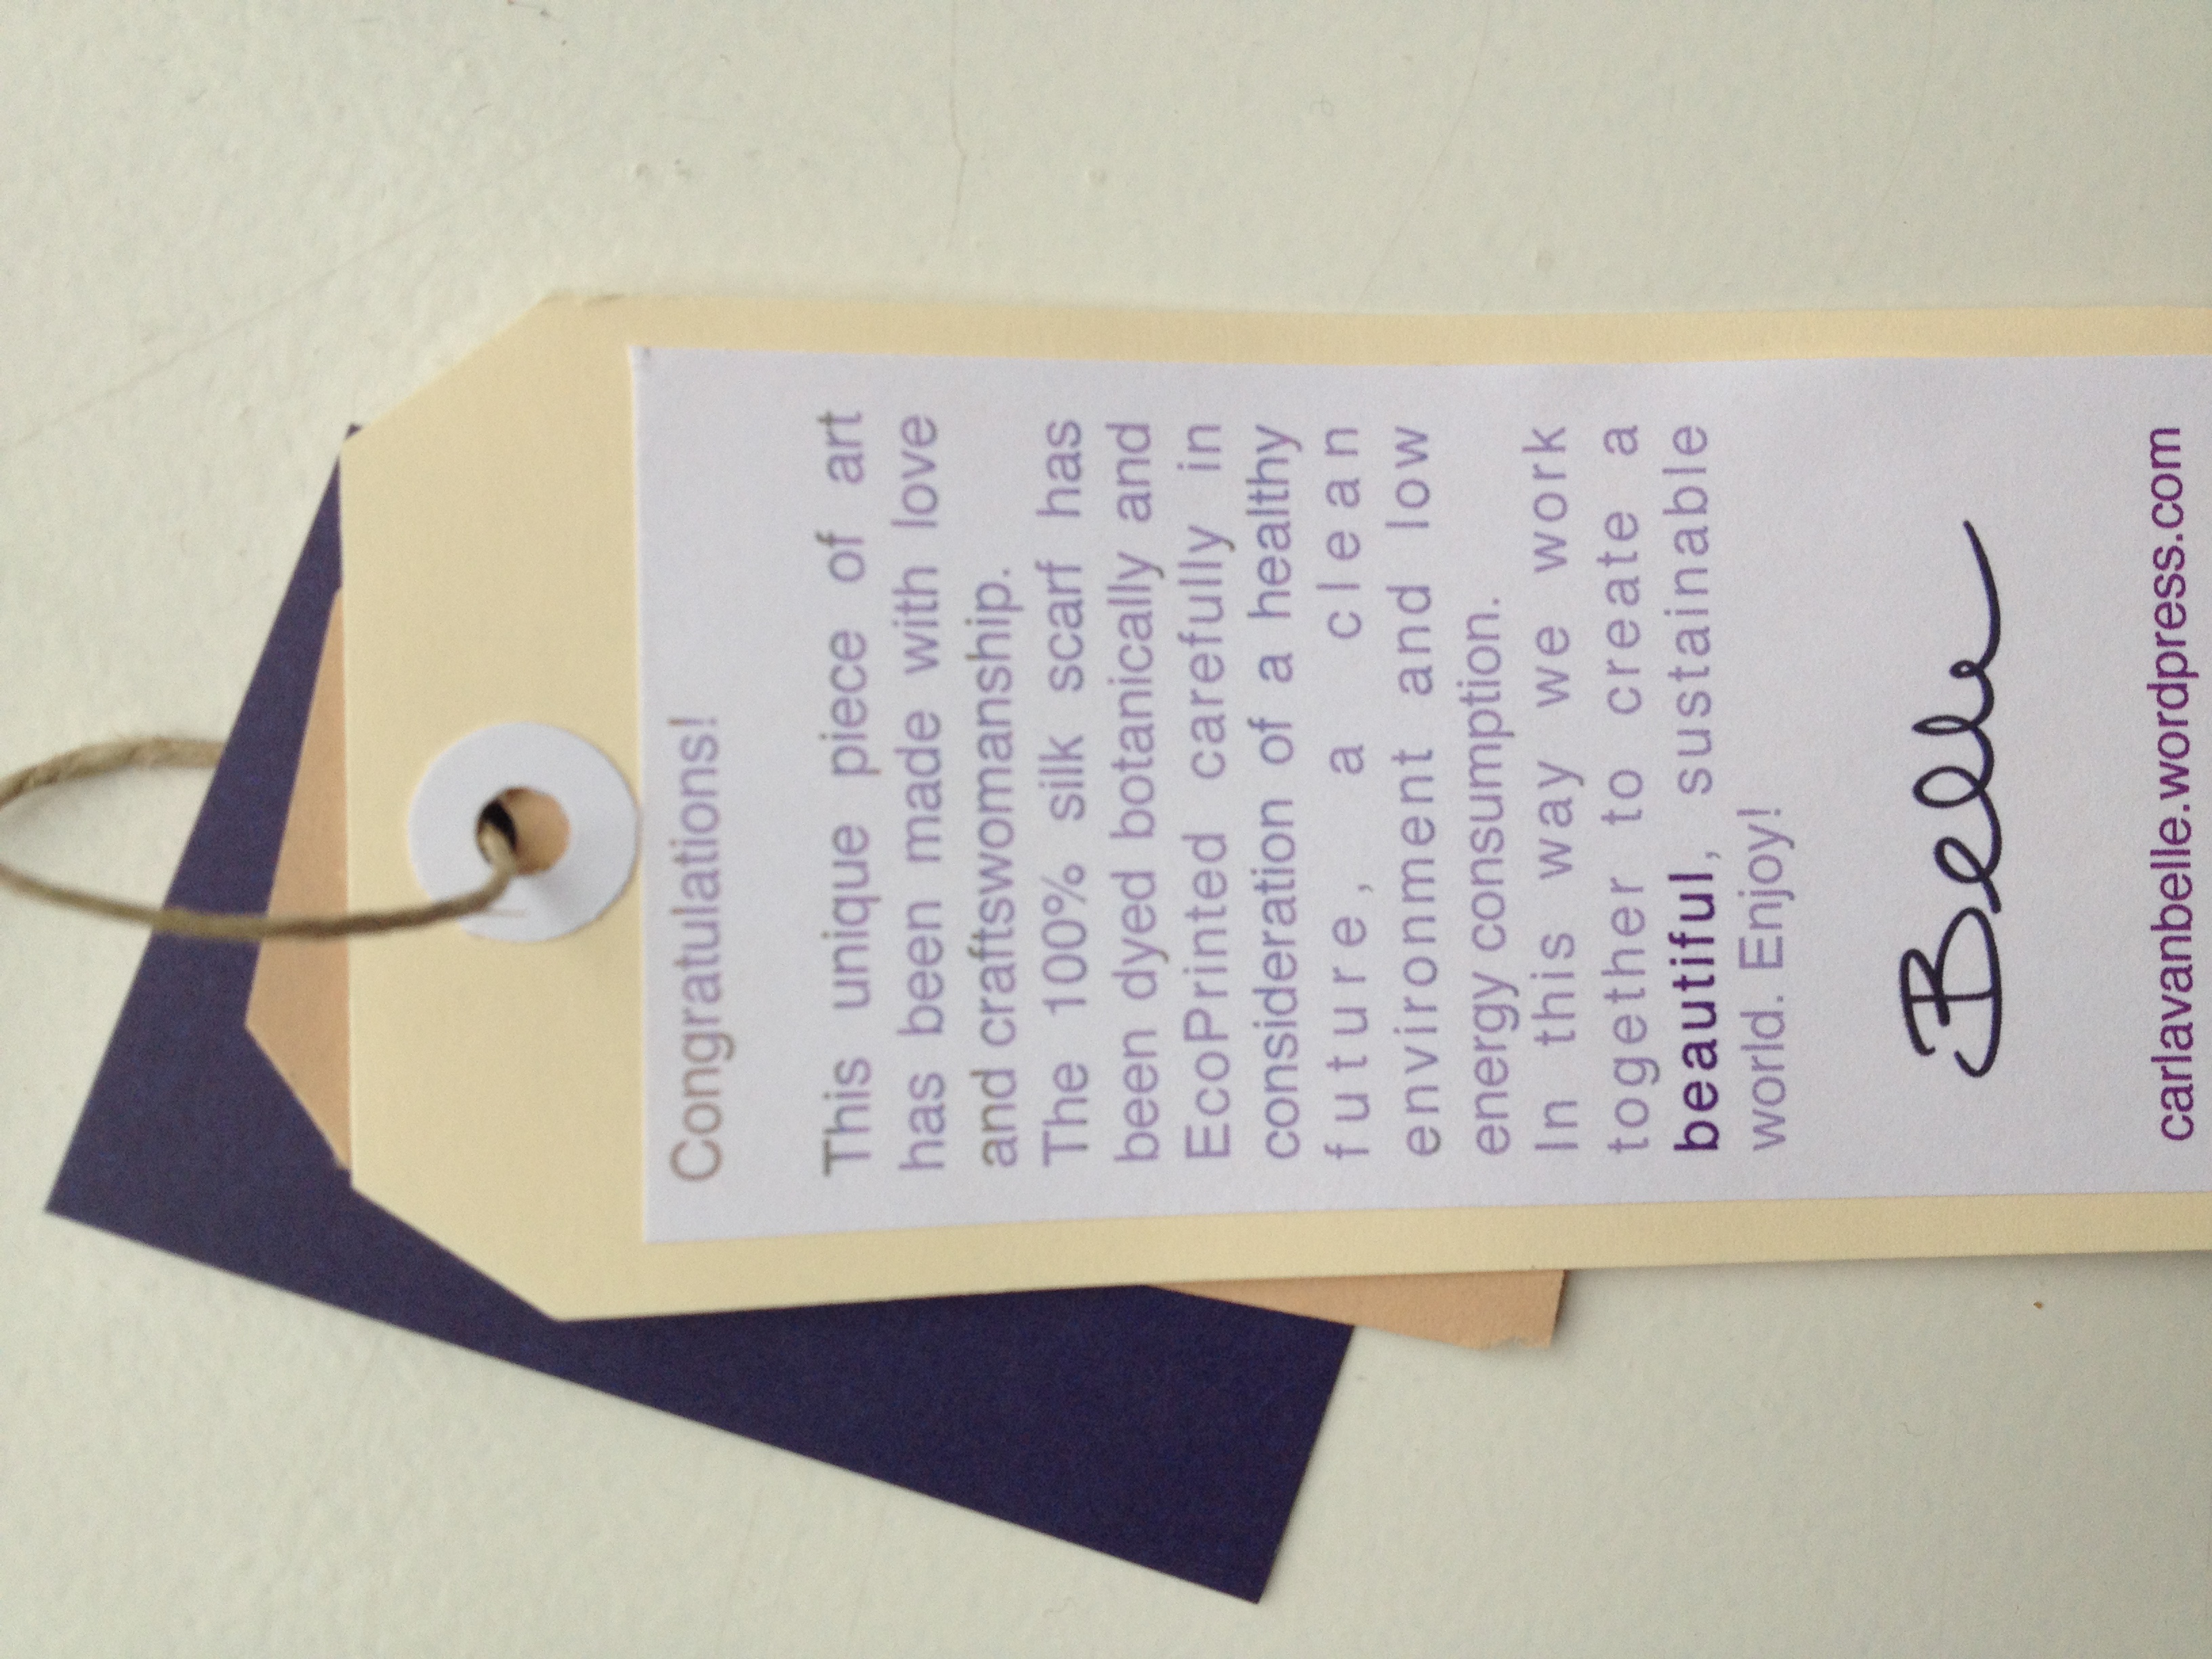 Congratulations!
This unique piece of art
has been made with love
and craftswomanship.
The 100% silk scarf has
been dyed botanically and
EcoPrinted carefully in
consideration of a healthy
future, a clean
environment and low
energy consumption.
In this way we work
together to create a
beautiful, sustainable
world. Enjoy!
Belle
carlavanbelle.wordpress.com